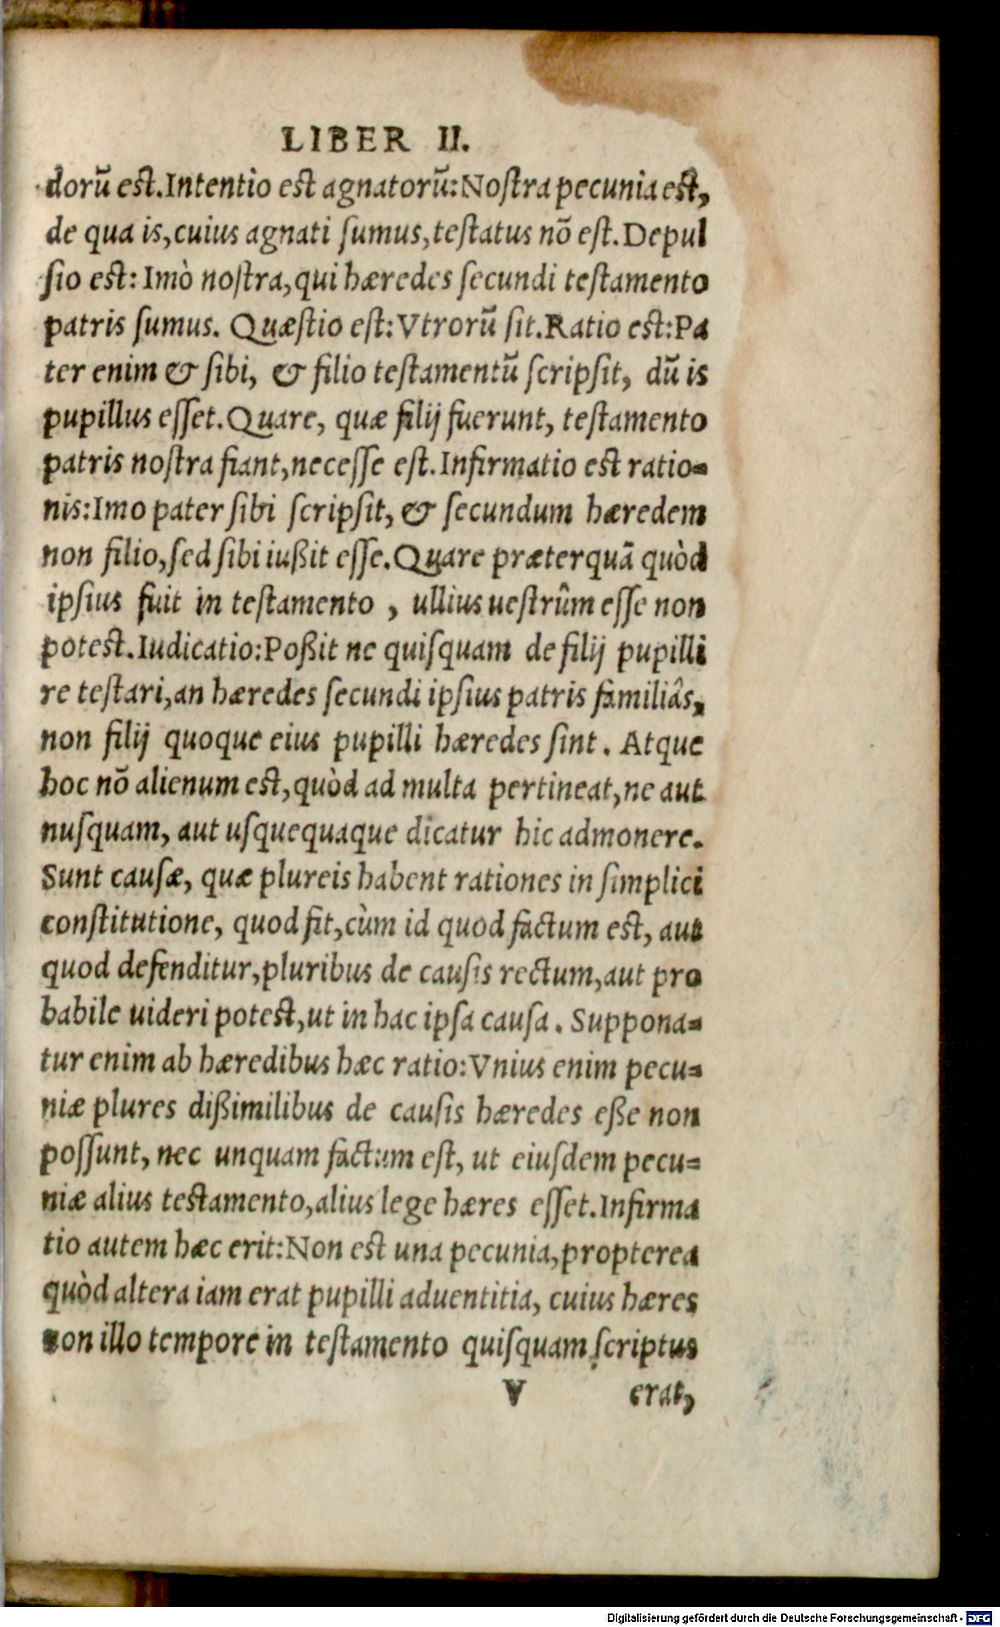 LIBER II.
dorũ est.Intentio est agnatorũ:Nostra pecunia est,
de qua is,cuius agnati sumus,testatus nõ est.Depul
sio est: Imò nostra,qui hæredes secundi testamento
patris sumus. Quæstio est:Vtrorũ sit.Ratio est:Pa
ter enim & sibi, & filio testamentũ scripsit, dũ is
pupillus esset.Quare, quæ filij fuerunt, testamento
patris nostra fiant,necesse est.Infirmatio est ratio-
nis:Imo pater sibi scripsit, & secundum hæredem
non filio,sed sibi iußit esse.Quare præterquã quòd
ipsius fuit in testamento , ullius uestrûm esse non
potest.Iudicatio:Poßit ne quisquam de filij pupilli
re testari,an hæredes secundi ipsius patris familiâs,
non filij quoque eius pupilli hæredes sint. Atque
hoc nõ alienum est,quòd ad multa pertineat,ne aut
nusquam, aut usquequaque dicatur hic admonere.
Sunt causæ, quæ plureis habent rationes in simplici
constitutione, quod fit,cùm id quod factum est, aut
quod defenditur,pluribus de causis rectum,aut pro
babile uideri potest,ut in hac ipsa causa. Suppona-
tur enim ab hæredibus hæc ratio:Vnius enim pecu-
niæ plures dißimilibus de causis hæredes eße non
possunt, nec unquam factum est, ut eiusdem pecu-
niæ alius testamento,alius lege hæres esset.Infirma
tio autem hæc erit:Non est una pecunia,propterea
quòd altera iam erat pupilli aduentitia, cuius hæres
non illo tempore in testamento quisquam scriptus
V erat,
Digitalisierung gefördert durch die Deutsche Forschungsgemeinschaft - DFG